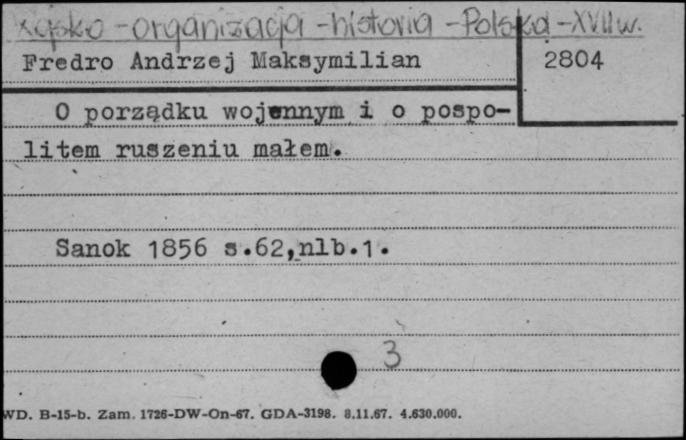 Wojsko - organizacja - historia - Polska - XVII w.
Fredro Andrzej Maksymilian
2804
O porządku wojennym i o pospo-
litem ruszeniu małem.
Sanok 1856 s.62,nlb.1.
3
WD. B-15-b. Zam. 1726-DW-On-67. GDA-3198. 8.11.67. 4.630.000.